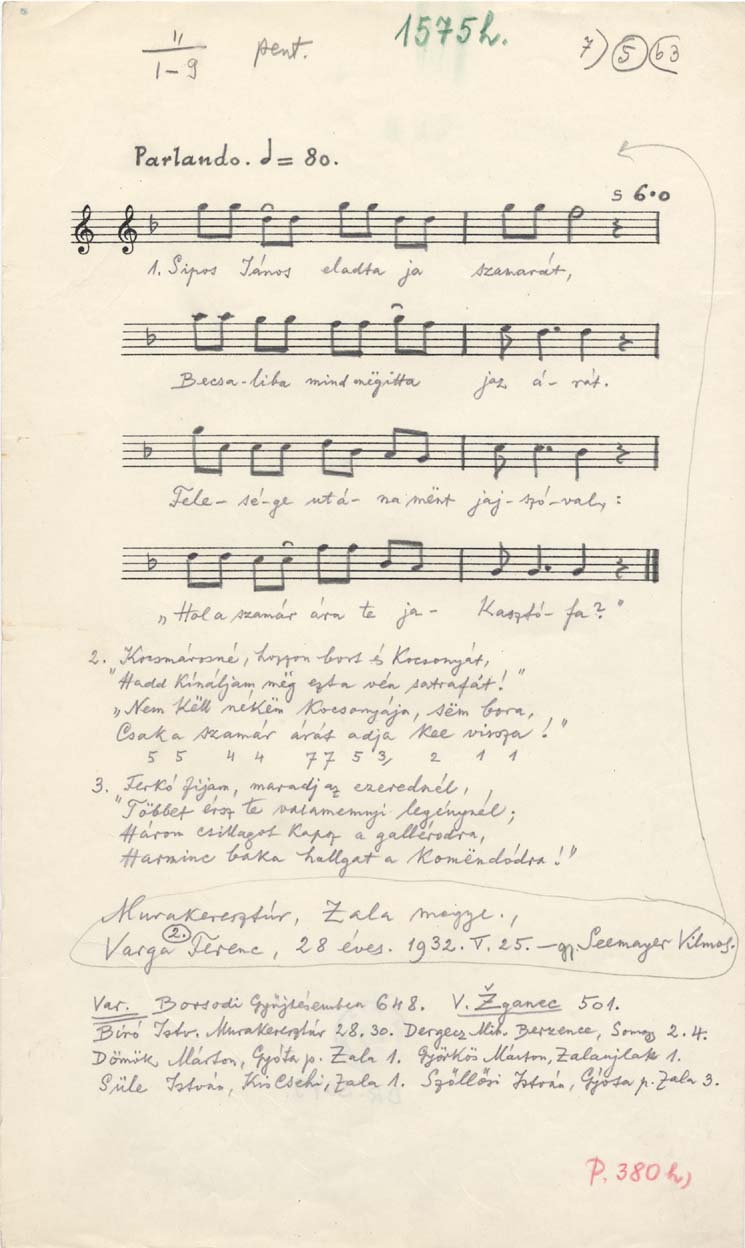 II
1-9
pent.
1575h.
7) 5 63
Parlando. = 80.
s 6·0
1. Sipos János eladta ja szamarát,
Becsa-liba mind mëgitta jaz á-rát.
Fele-sé-ge utá-na mënt jaj-szó-val:
„Hol a szamár ára te ja- Kasztó-fa?"
2. Kocsmárosné, hozzon bort és Kocsonyát,
"Hadd Kináljam mëg ezt a vén satrafát!"
„Nem Këll nekëm Kocsonyája, sëm bora,
Csak a szamár árát adja Kee vissza!"
5 5 4 4 7 7 5 3, 2 1 1
3. Ferkó fijam, maradj az ezerednél,
"Többet érsz te valamennyi legénynél;
Három csillagot Kapsz a gallérodra,
Harminc baka hallgat a Komëndódra!"
Murakeresztúr, Zala megye.,
Varga 2. Ferenc, 28 éves. 1932. V. 25. – gy. Seemayer Vilmos.
Var. Borsodi Gyűjtésemben 648. V. Žganec 501.
Biró Istv. Murakeresztúr 28.30. Dergecz Mih. Berzence, Somogy 2.4.
Dömök Márton, Gyóta p. Zala 1. Györkös Márton, Zalaujlak 1.
Süle István, Kis Csehi, Zala 1. Szőllősi István, Gyósa p. Zala 3.
P. 380h)